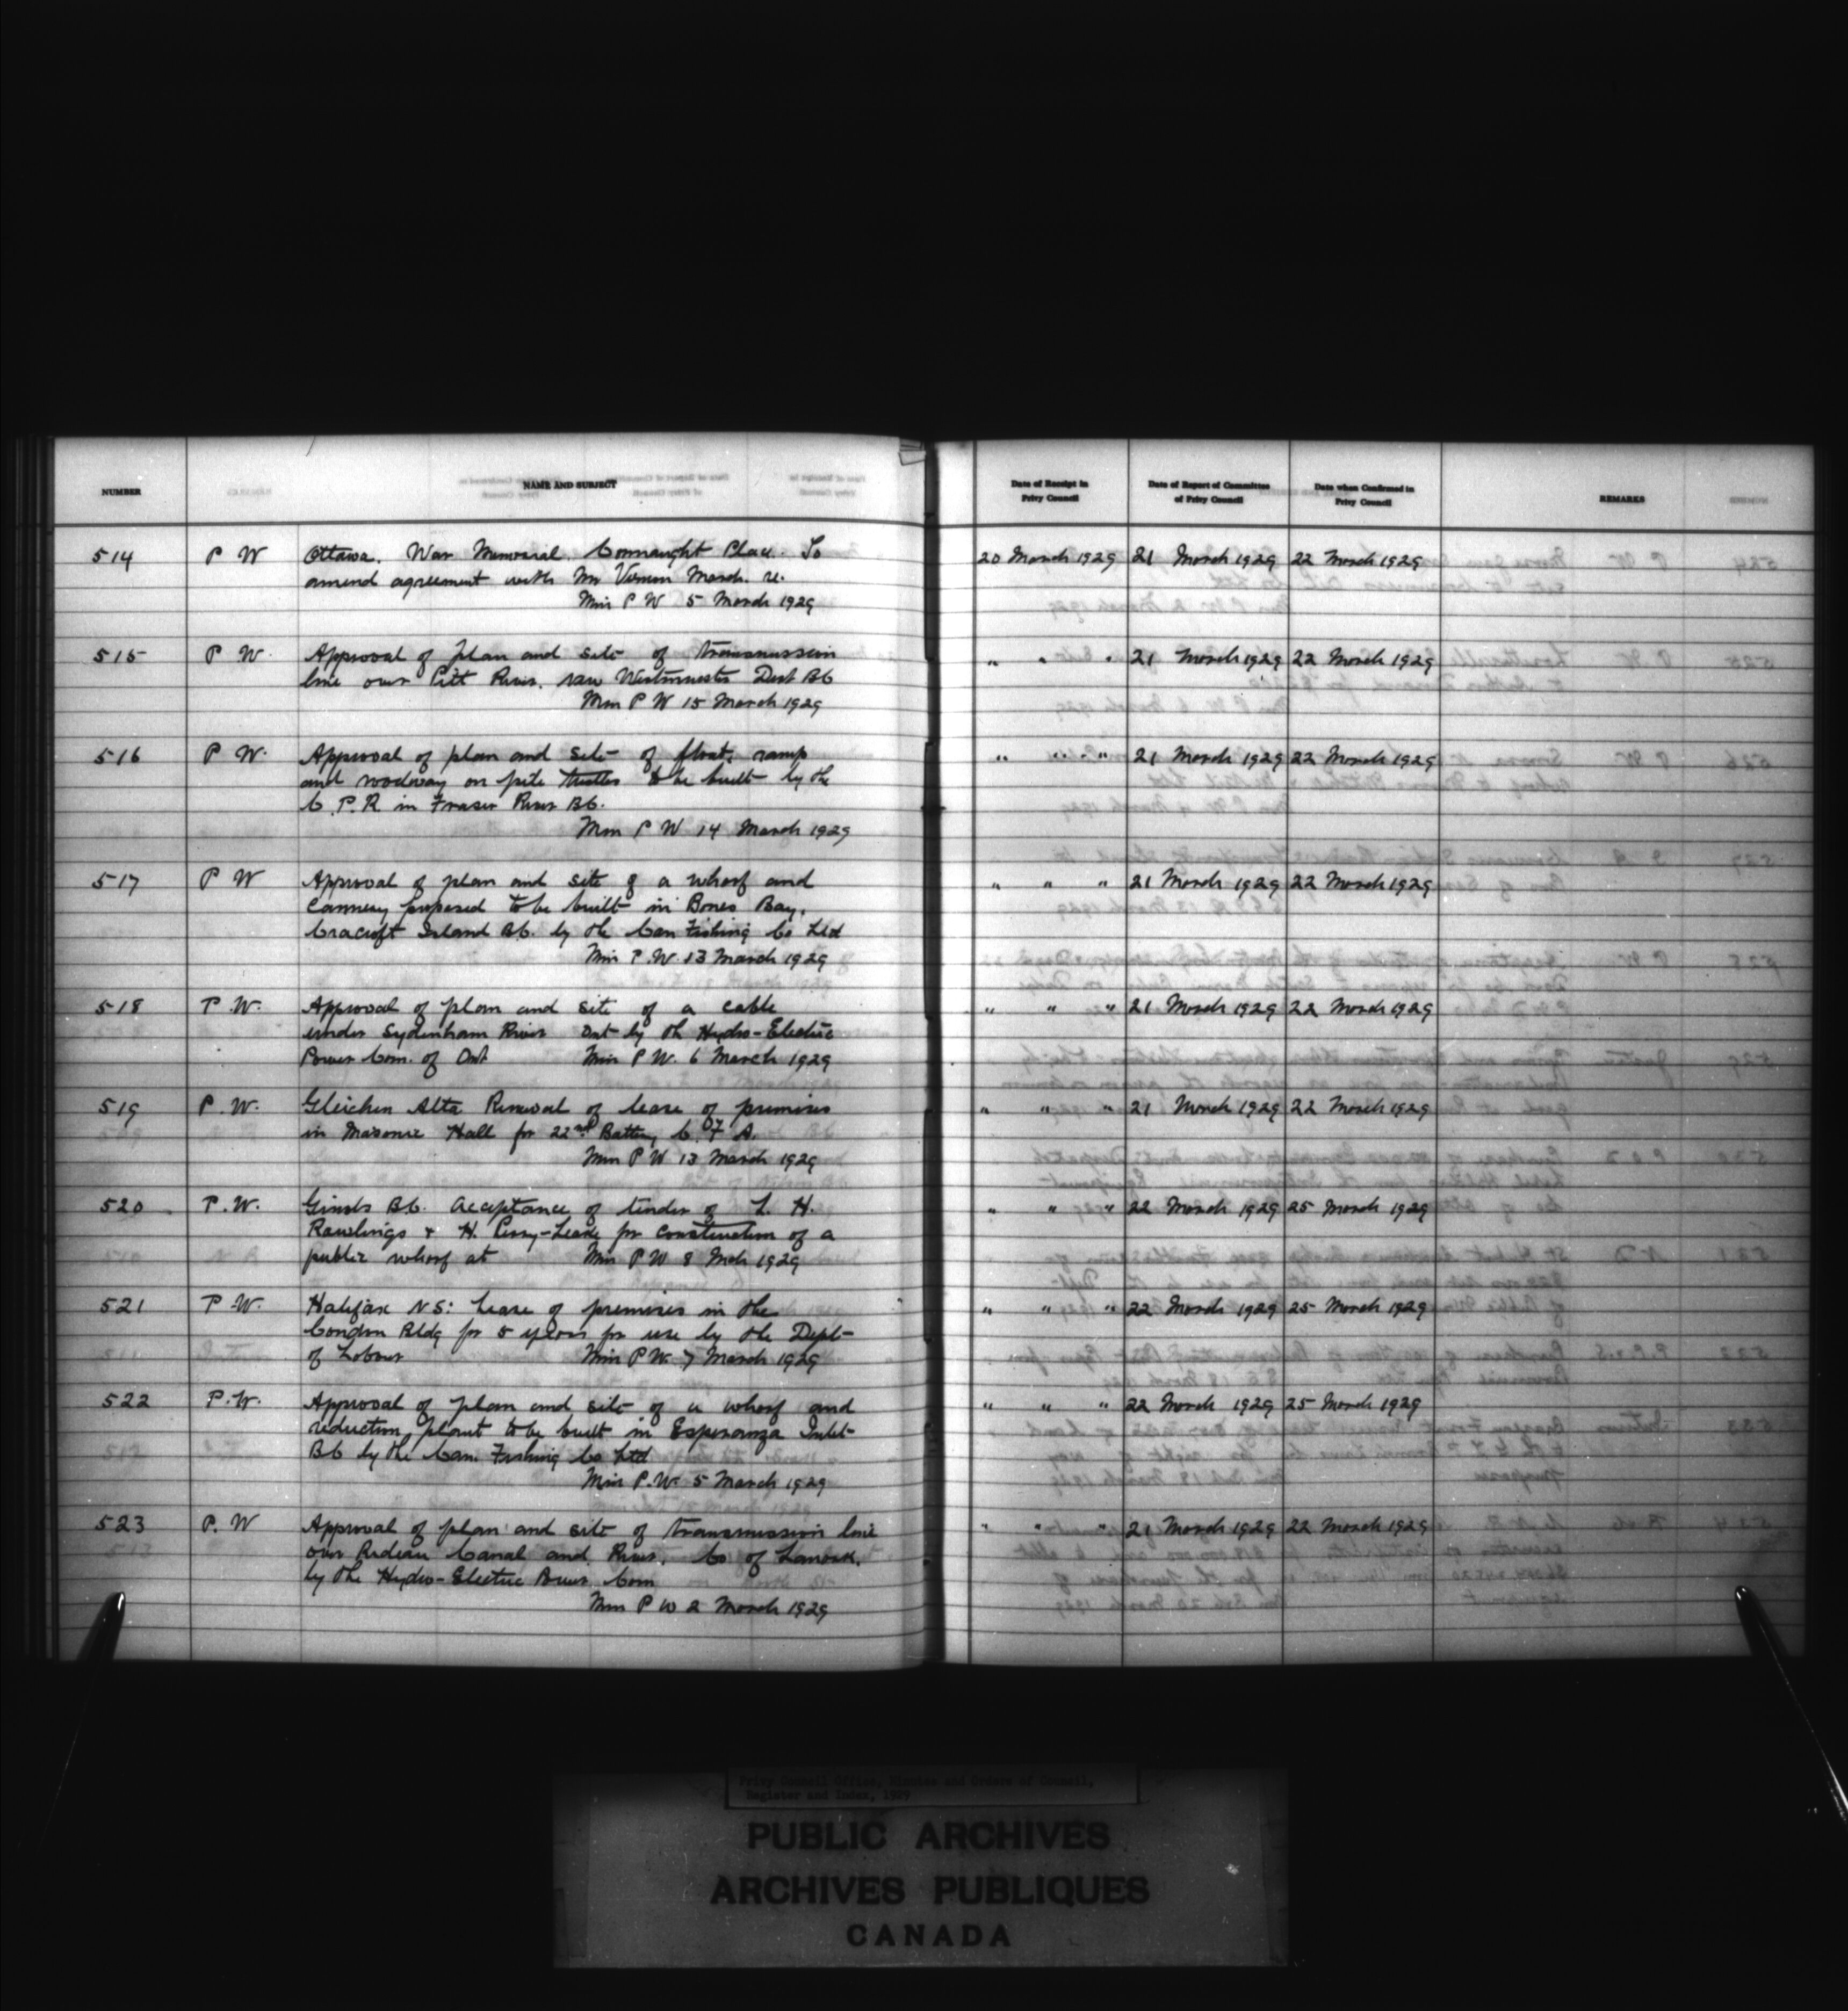 NUMBER NAME AND SUBJECT Date of Receipt in Privy Council Date of Report of Committee of Privy Council Date when Confirmed in Privy Council REMARKS
514 P W Ottawa. War Memorial. Connaught Place. To 20 March 1929 21 March 1929 22 March 1929
amend agreement with Mr Vernon March. re.
Min P W 5 March 1929
515 P W. Approval of plan and site of transmission " " " 21 March 1929 22 March 1929
line over Pitt River. New Westminster Dist BC
Min P W 15 March 1929
516 P W. Approval of plan and site of float, ramp " " " 21 March 1929 22 March 1929
and roadway on pile trestles to be built by the
C.P.R in Fraser River BC.
Min P W 14 March 1929
517 P W Approval of plan and site of a wharf and " " " 21 March 1929 22 March 1929
Cannery proposed to be built in Bones Bay,
Cracroft Island BC. by the Can Fishing Co Ltd
Min P.W. 13 March 1929
518 P.W. Approval of plan and site of a cable " " " 21 March 1929 22 March 1929
under Sydenham River Ont by the Hydro-Electric
Power Com. of Ont Min P W. 6 March 1929
519 P.W. Gleichen Alta Renewal of lease of premises " " " 21 March 1929 22 March 1929
in Masonic Hall for 22nd Battery C.F A.
Min P W 13 March 1929
520 P.W. BC. Acceptance of tender of L. H. " " " 22 March 1929 25 March 1929
Rawlings & H. Perry-Leake for construction of a
public wharf at Min P W 8 Mch 1929
521 P.W. Halifax NS: Lease of premises in the " " " 22 March 1929 25 March 1929
Congdon Bldg for 5 years for use by the Dept
of Labour Min P W. 7 March 1929
522 P.W. Approval of plan and site of a wharf and " " " 22 March 1929 25 March 1929
reduction plant to be built in Esperanza Inlet
BC by the Can. Fishing Co Ltd
Min P.W. 5 March 1929
523 P. W Approval of plan and site of transmission line " " " 21 March 1929 22 March 1929
over Rideau Canal and River. Co of Lanark.
by the Hydro-Electric Power Com
Min P W 2 March 1929
Privy Council Office, Minutes and Orders of Council,
Register and Index, 1929
PUBLIC ARCHIVES
ARCHIVES PUBLIQUES
CANADA